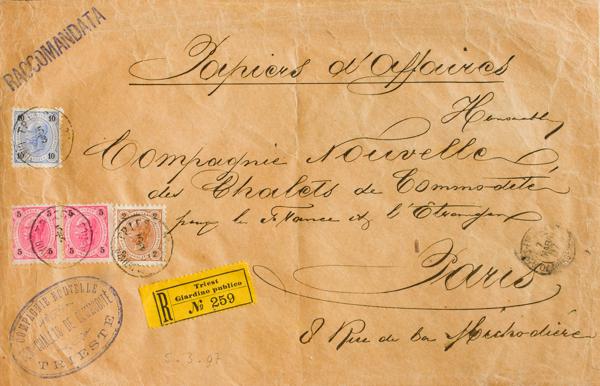 RACCOMANDATA
Papiers d'affaires
Honorable
Compagnie Nouvelle
des Chalets de Commodité
pour la France et l'Étranger
Paris
8 Rue de la Michodière
10 10
10 10
5 5
5 5
5 5
5 5
2 2
2 2
TRIEST
R
Triest
Giardino publico
№ 259
COMPAGNIE
CHALET DE
TRIESTE
5.3.97